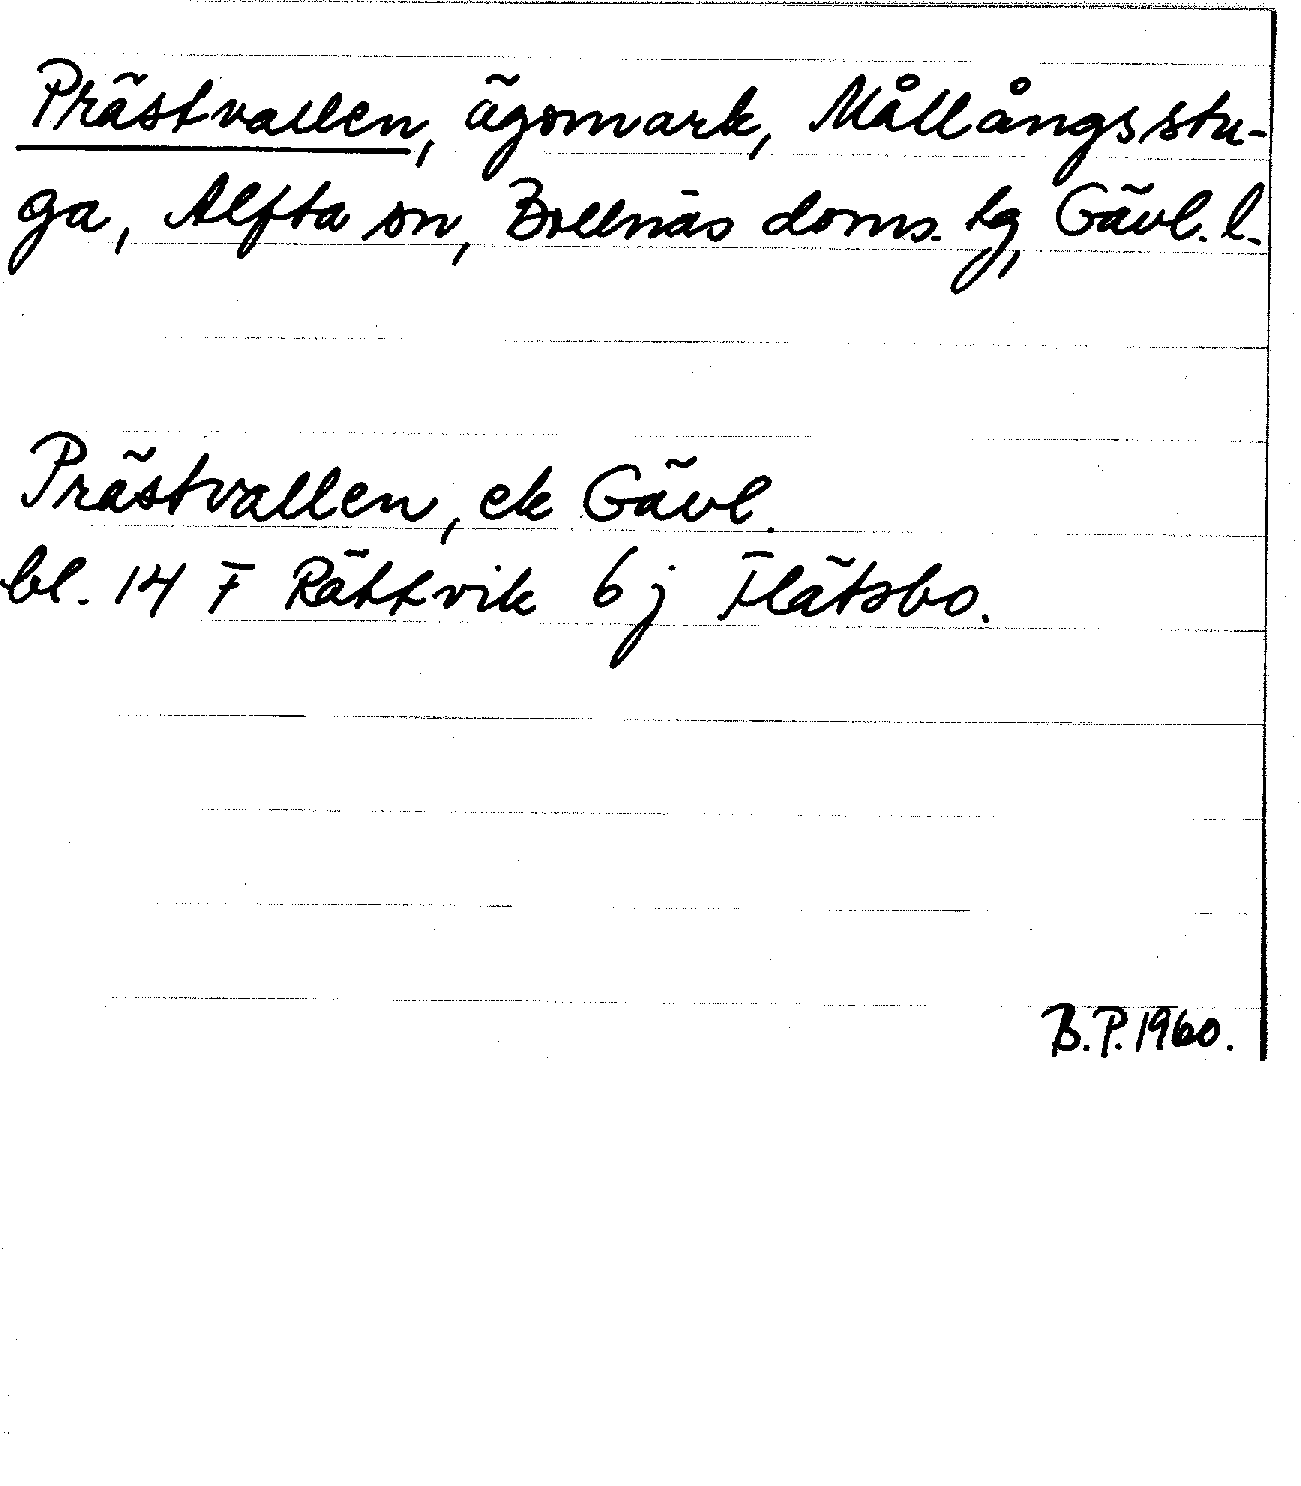 Prästvallen, ägomark, Mållångsstu-
ga, Alfta sn, Bollnäs doms. tg, Gävl. l.
Prästvallen, ek Gävl.
bl. 14 F Rättvik 6 j Flätsbo.
B.P. 1960.